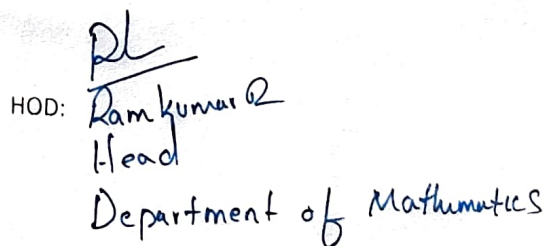 HOD: Ramkumar R
Head
Department of Mathematics